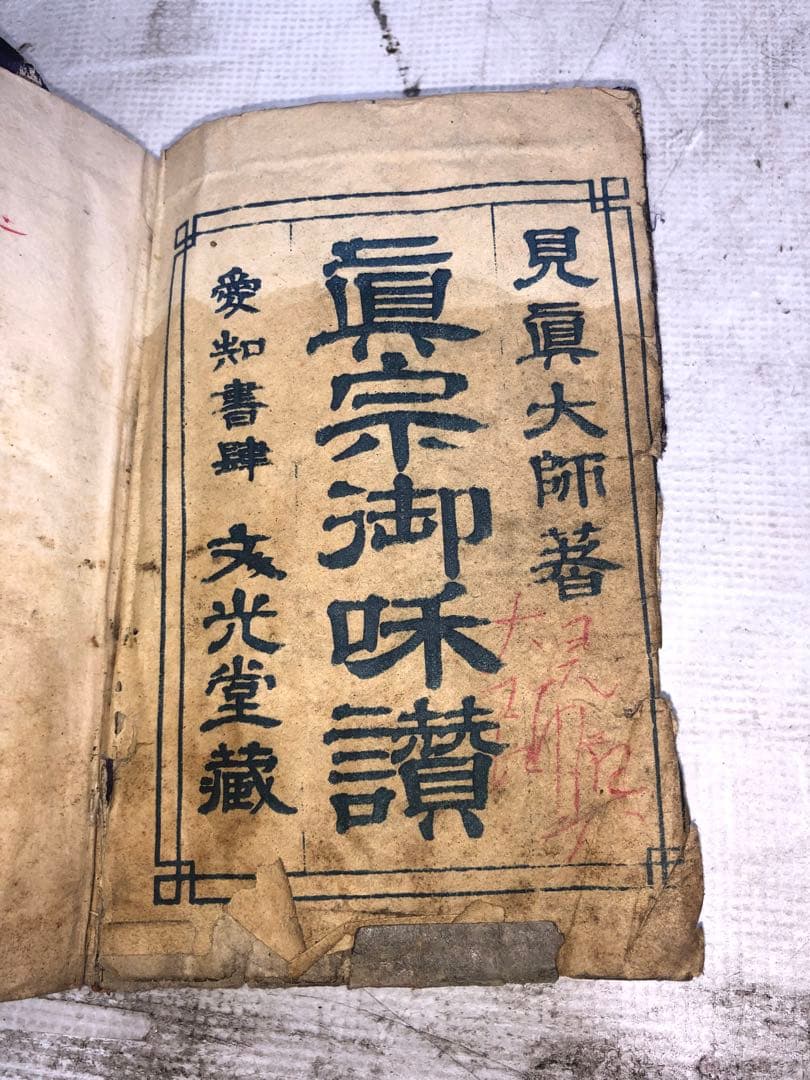 見眞大師著
眞宗御咊讃
愛知書肆 文光堂藏